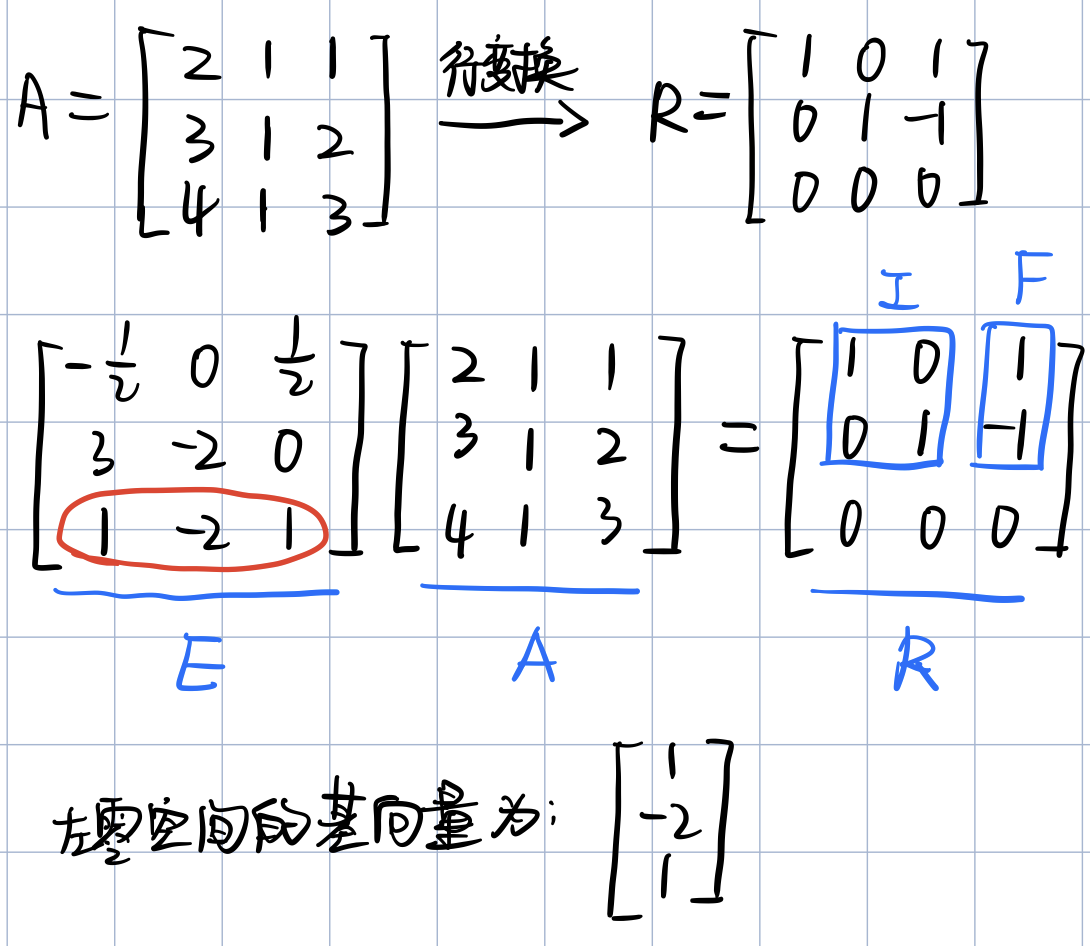 A = [2 1 1; 3 1 2; 4 1 3] 行变换 → R = [1 0 1; 0 1 -1; 0 0 0]
I F
[-1/2 0 1/2; 3 -2 0; 1 -2 1] [2 1 1; 3 1 2; 4 1 3] = [1 0 1; 0 1 -1; 0 0 0]
E A R
左零空间的基向量为: [1; -2; 1]